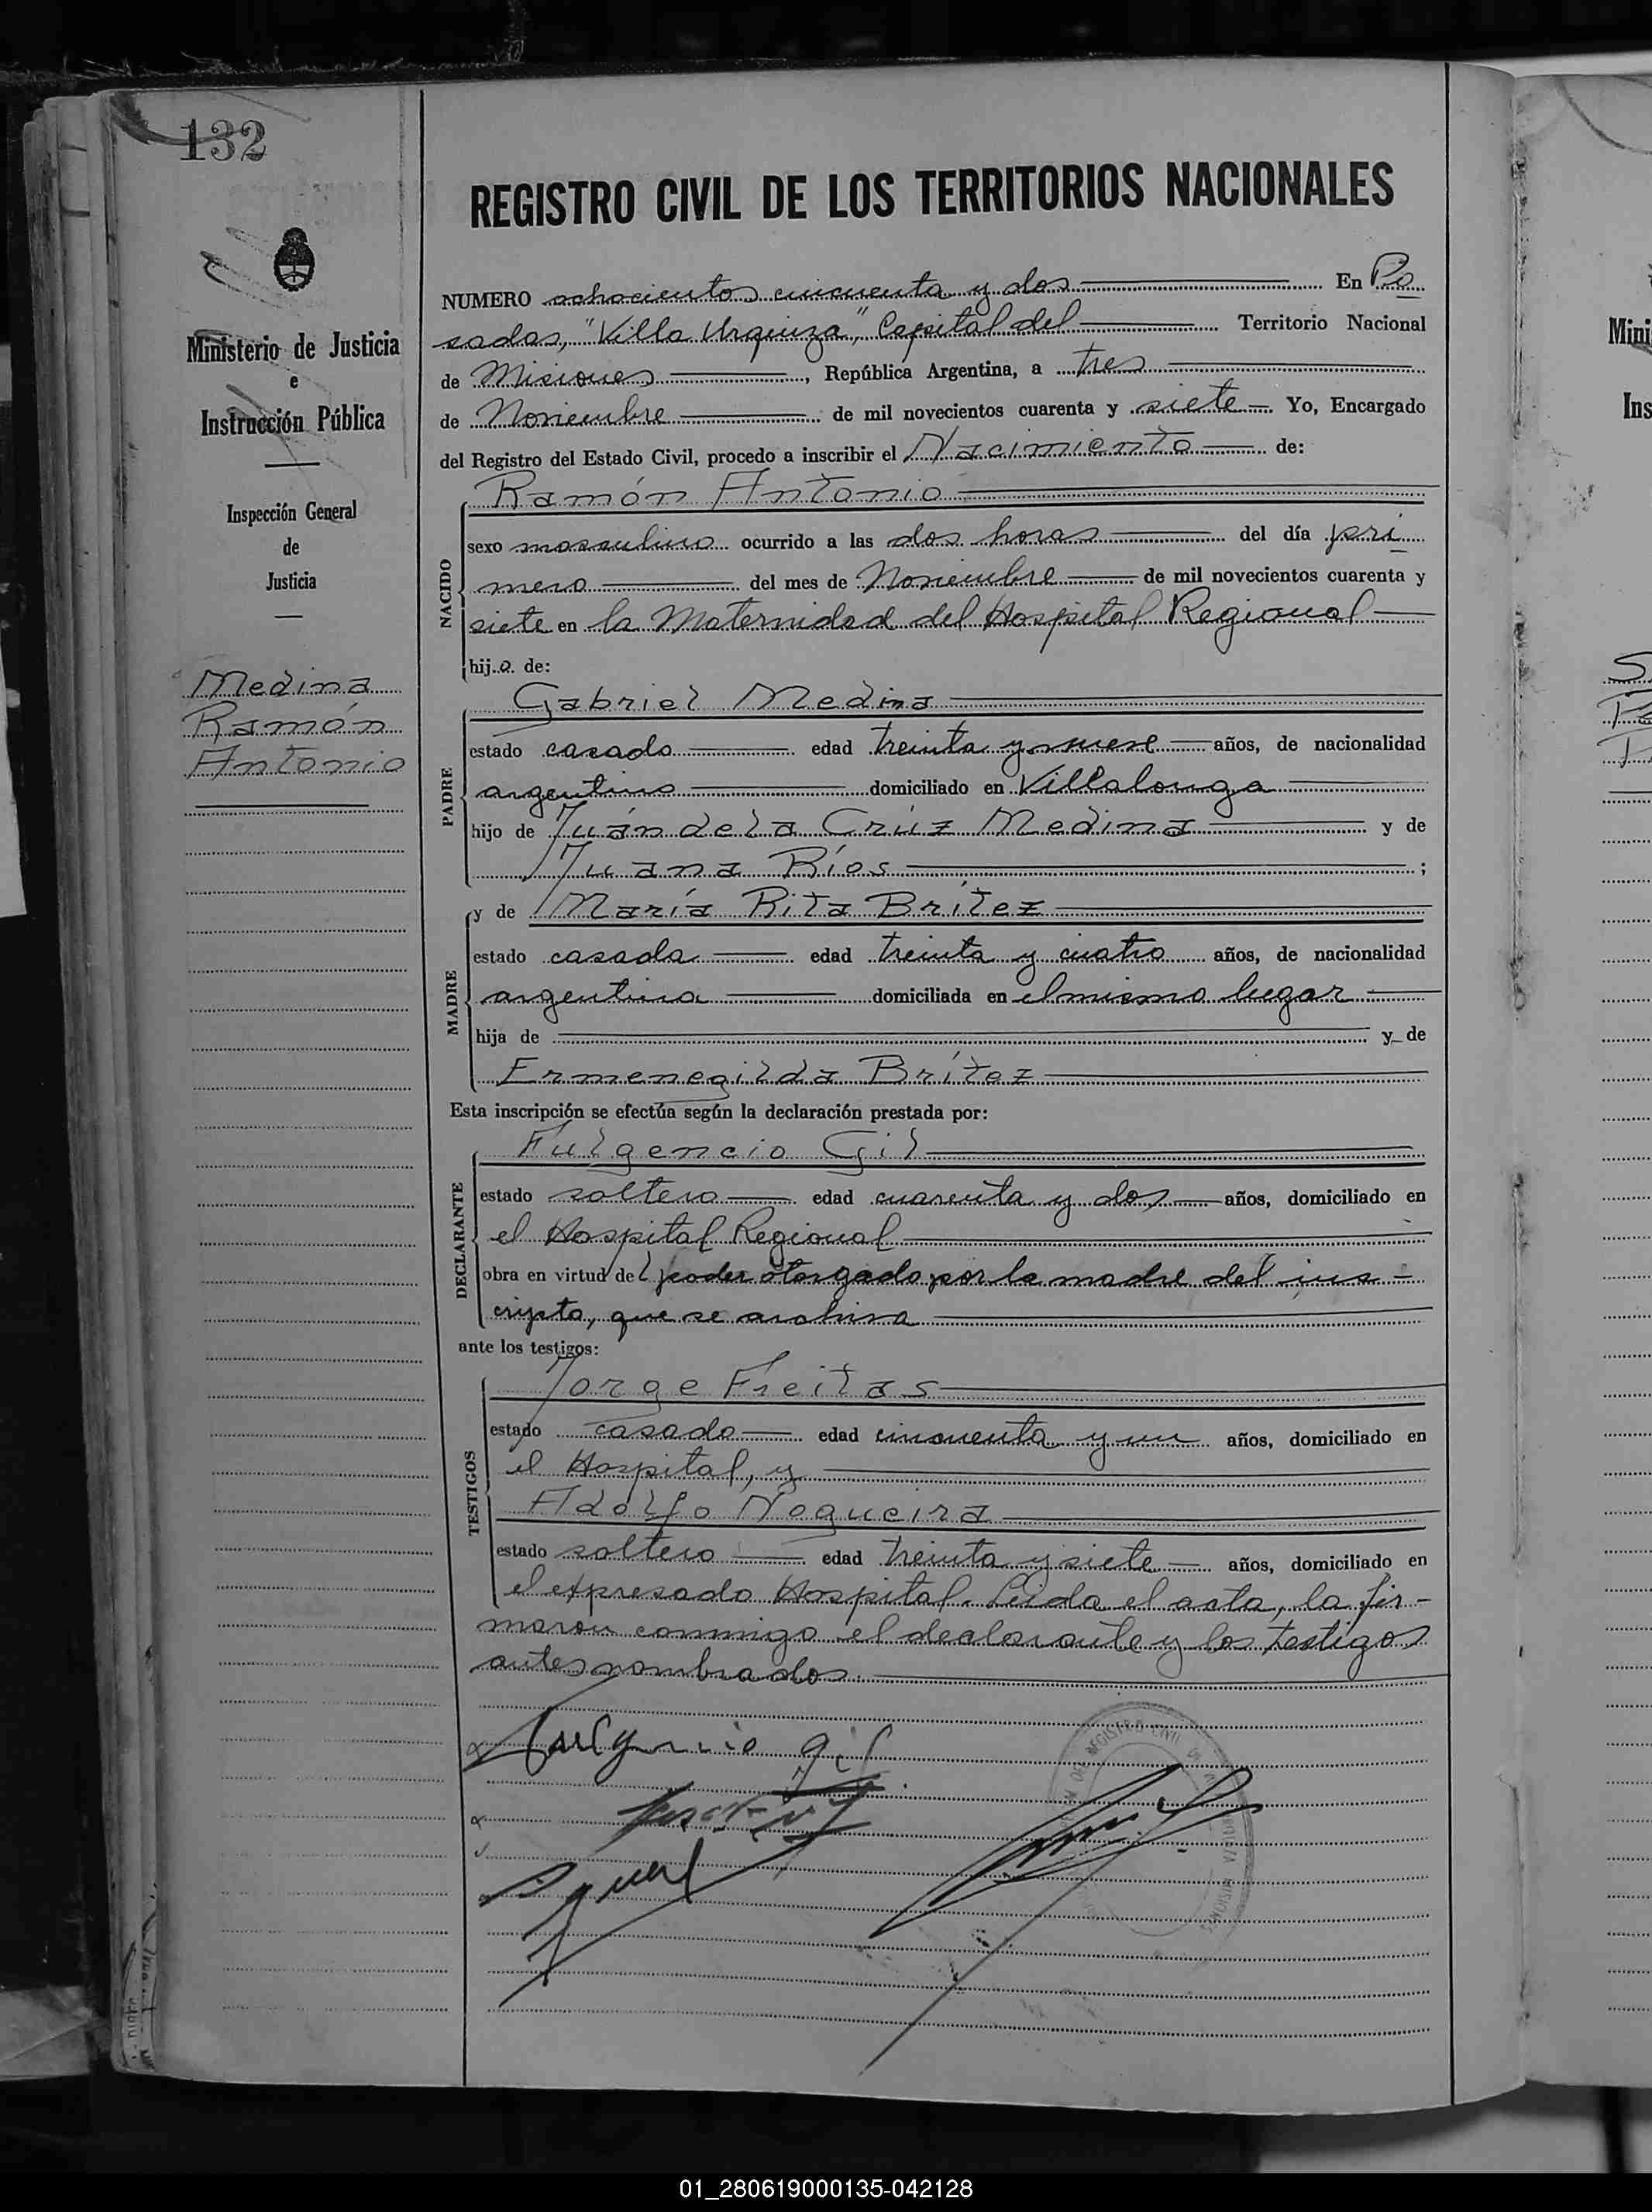 132
Ministerio de Justicia
e
Instrucción Pública
Inspección General
de
Justicia
Medina
Ramón
Antonio
REGISTRO CIVIL DE LOS TERRITORIOS NACIONALES
NUMERO ochocientos cincuenta y dos En Po
sadas, "Villa Urquiza", Capital del Territorio Nacional
de Misiones, República Argentina, a tres
de Noviembre de mil novecientos cuarenta y siete Yo, Encargado
del Registro del Estado Civil, procedo a inscribir el Nacimiento de:
Ramón Antonio
NACIDO
sexo masculino ocurrido a las dos horas del día pri
mero del mes de Noviembre de mil novecientos cuarenta y
siete en la Maternidad del Hospital Regional
hijo de:
Gabriel Medina
PADRE
estado casado edad treinta y nueve años, de nacionalidad
argentino domiciliado en Villalonga
hijo de Juán de la Crúz Medina y de
Juana Ríos;
MADRE
y de María Rita Brítez
estado casada edad treinta y cuatro años, de nacionalidad
argentina domiciliada en el mismo lugar
hija de y de
Ermenegilda Brítez
Esta inscripción se efectúa según la declaración prestada por:
Fulgencio Gil
DECLARANTE
estado soltero edad cuarenta y dos años, domiciliado en
el Hospital Regional
obra en virtud del poder otorgado por la madre del ins-
cripto, que se archiva
ante los testigos:
Jorge Freitas
TESTIGOS
estado casado edad cincuenta y un años, domiciliado en
el Hospital, y
Adolfo Nogueira
estado soltero edad treinta y siete años, domiciliado en
el expresado Hospital. Leída el acta, la fir-
maron conmigo el declarante y los testigos
antes nombrados.
Fulgencio gil
REGISTRO CIVIL
MISIONES
Mini
Ins
01_280619000135-042128